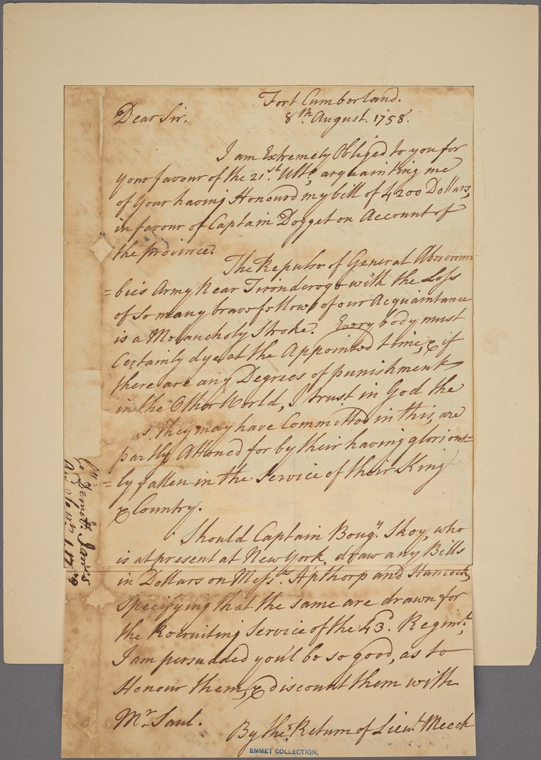 Fort Cumberland.
8th August. 1758.
Dear Sir.
I am Extremely Obliged to you for
your favour of the 21st. Ulto, acquainting me
of Your having Honourd my bill of 4200 Dollars,
in favour of Captain Dogget on Account of
the province.
The Repulse of General Abercrom=
=bie's Army Near Tironderoga with the Loss
of So many brave fellows of our Acquaintance
is a Melancholy Stroke. Every body must
Certainly dye at the Appointed time, & if
there are any Degrees of punishment
in the Other World, I trust in God the
as they may have Committed in this, are
partly Attoned for by their having glorious=
=ly fallen in the Service of their King
& Country.
Should Captain Skoy, who
is at present at New York, draw any Bills
in Dollars on Messrs. Apthorp and Hancock,
Specifying that the same are drawn for
the Recruiting Service of the 43. Regimt,
I am persuaded you'l be so good, as to
Honour them, & discount them with
Mr. Saul.
By the Return of Lieut. Meech
EMMET COLLECTION.